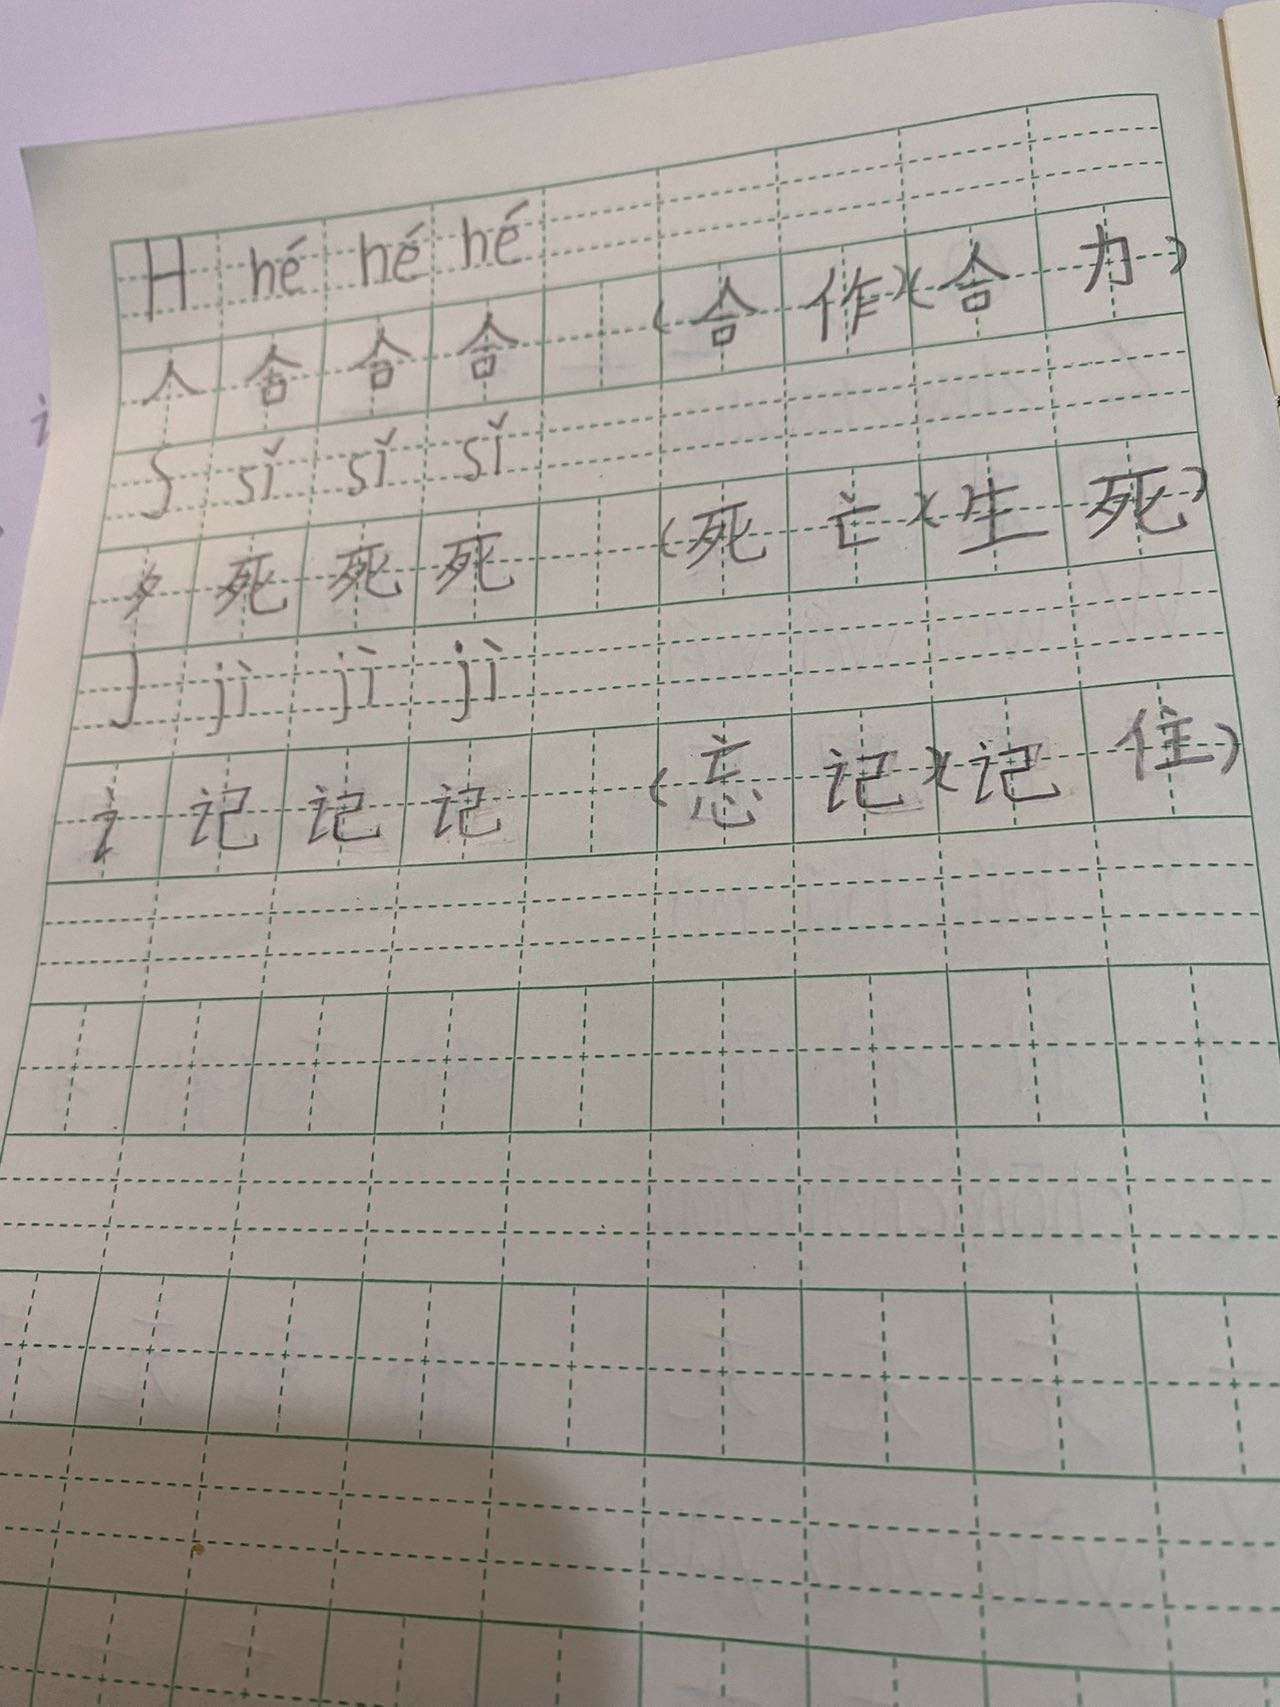 H hé hé hé
人 合 合 合 (合作)(合力)
S sǐ sǐ sǐ
歹 死 死 死 (死亡)(生死)
J jì jì jì
讠 记 记 记 (忘记)(记住)